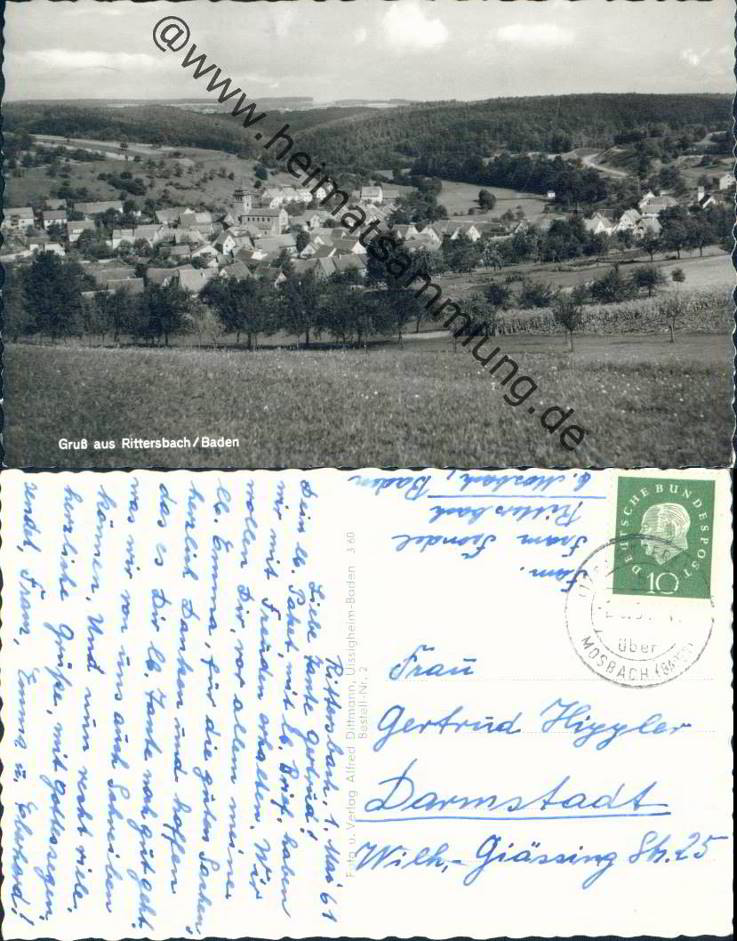 @www.heimatsammlung.de
Gruß aus Rittersbach/Baden
Rittersbach, 1. Mai 61
Liebe Tante Gertrud!
Dein lb. Paket mit lb. Brief, haben
wir mit Freuden erhalten. Wir
wollen Dir, vor allem meine
lb. Emma, für die guten Sachen,
herzlich Danken und hoffen
das es Dir lb. Tante noch gut geht.
was wir von uns auch Schreiben
können. Und nun recht viele
herzliche Grüße, mit Gottessegen,
sendet, Franz, Emma u. Ekehard!
Foto u. Verlag Alfred Dittmann, Uissigheim-Baden 3 60
Bestell-Nr. 2
Fam.
Franz
Rittersbach
b. Mosbach, Baden
DEUTSCHE BUNDESPOST
10
über
MOSBACH
Frau
Gertrud Hippler
Darmstadt
Wilh.- Glässing Str. 25